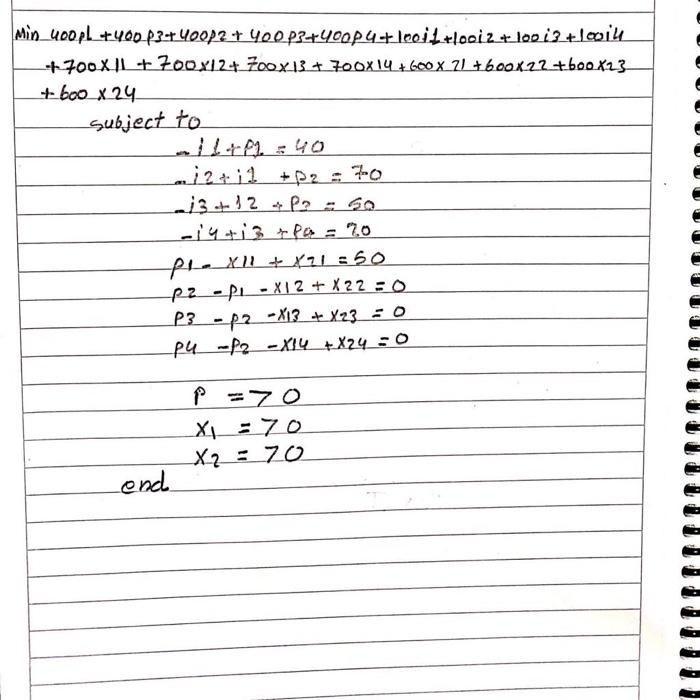 Min 400p1 +400p3+400p2+400p3+400p4+100i1+100i2+100i3+100i4
+700x11 + 700x12+ 700x13 + 700x14+600x21+600x22+600x23
+600x24
subject to
-i1+p1 = 40
-i2+i1 +p2 = 70
-i3+i2 +p3 = 50
-i4+i3 +p4 = 20
p1- x11 + x21 = 50
p2 -p1 -x12 + x22 = 0
p3 -p2 -x13 + x23 = 0
p4 -p2 -x14 + x24 = 0
p =70
x1 =70
x2 =70
end